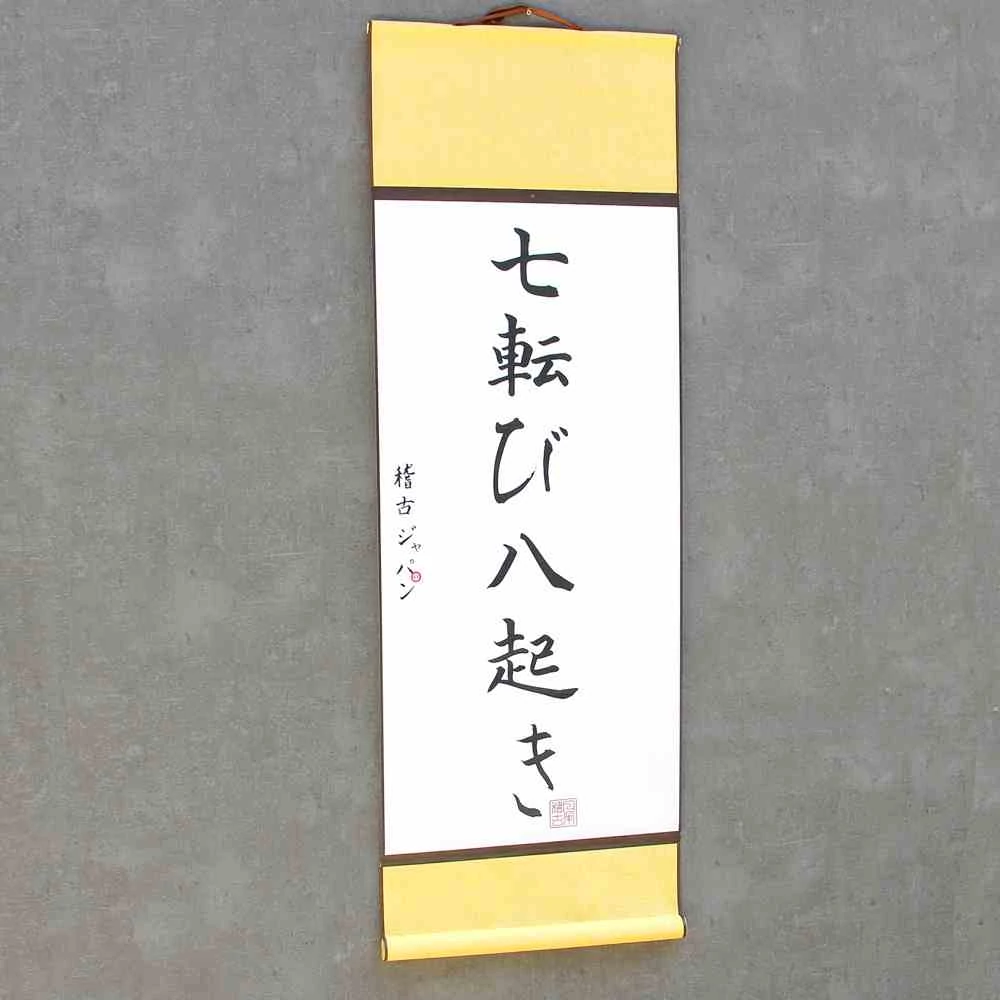 七転び八起き
稽古ジャパン